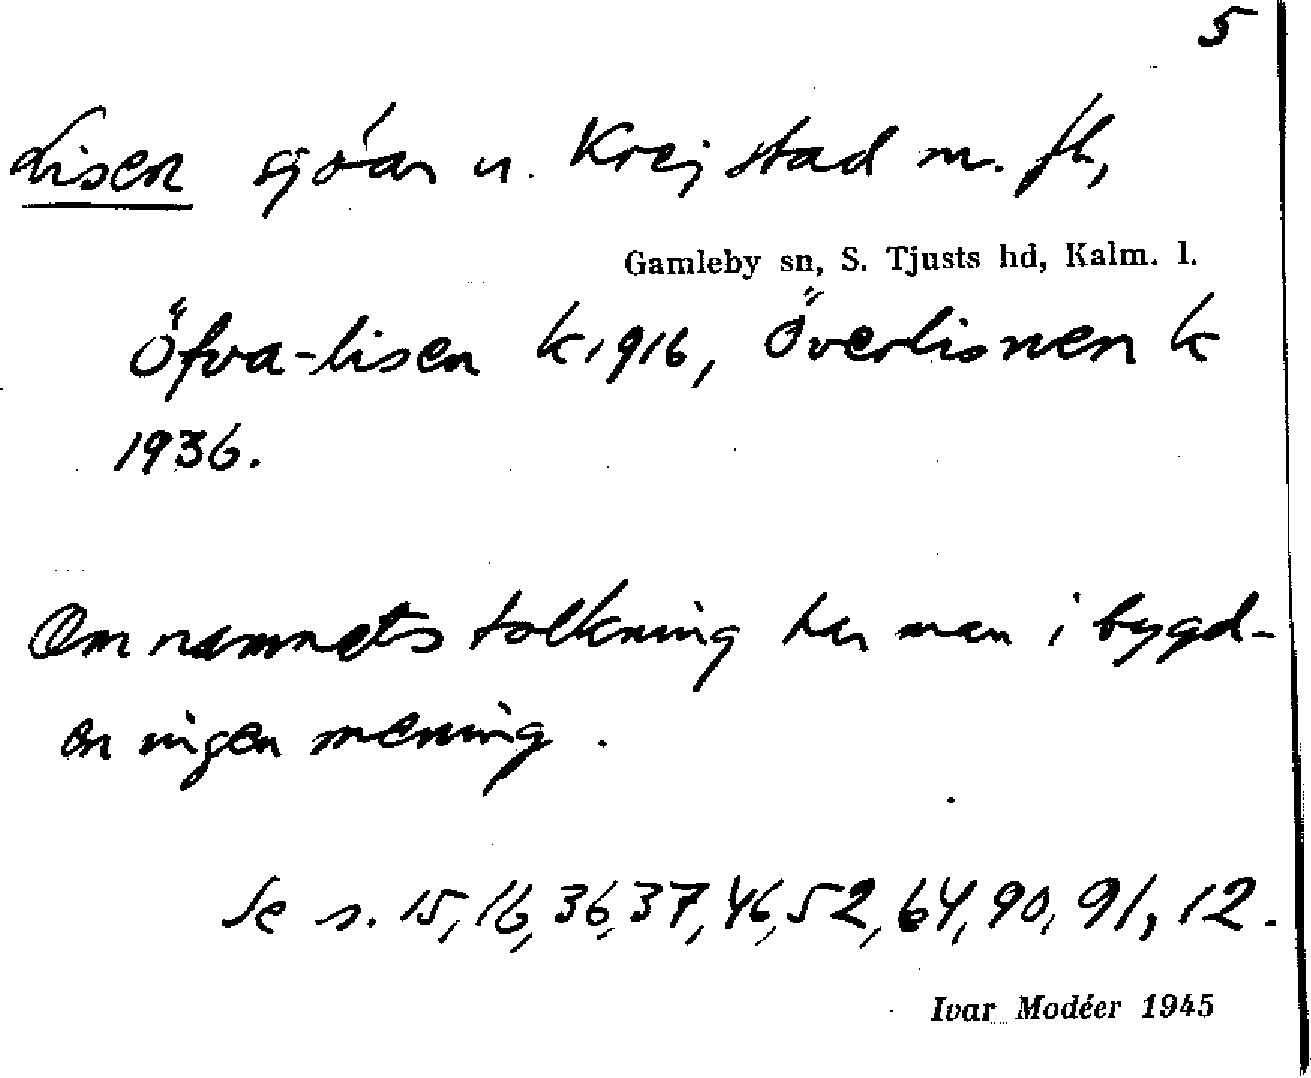 5
Lisen sjöar u. Krejstad m. fl,
Gamleby sn, S. Tjusts hd, Kalm. l.
Öfva-lisen k 1916, Överlisnen k
1936.
Om namnets tolkning har man i bygd-
en ingen mening.
Se s. 15, 16, 36, 37, 46, 52, 64, 90, 91, 12.
Ivar Modéer 1945